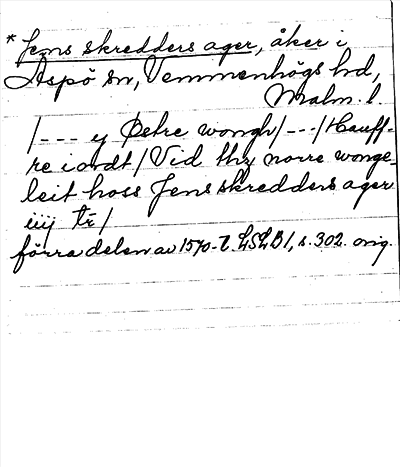 * Jens skredders ager, åker i
Aspö sn, Vemmenhögs hd,
Malm. l.
/--- y Østre wongh/---/Hauff-
re iordt/Vid thz norre wonge-
leit hoss Jens skredders ager
iiij tr/
förra delen av 1570-t. LSLB1, s. 302. orig.